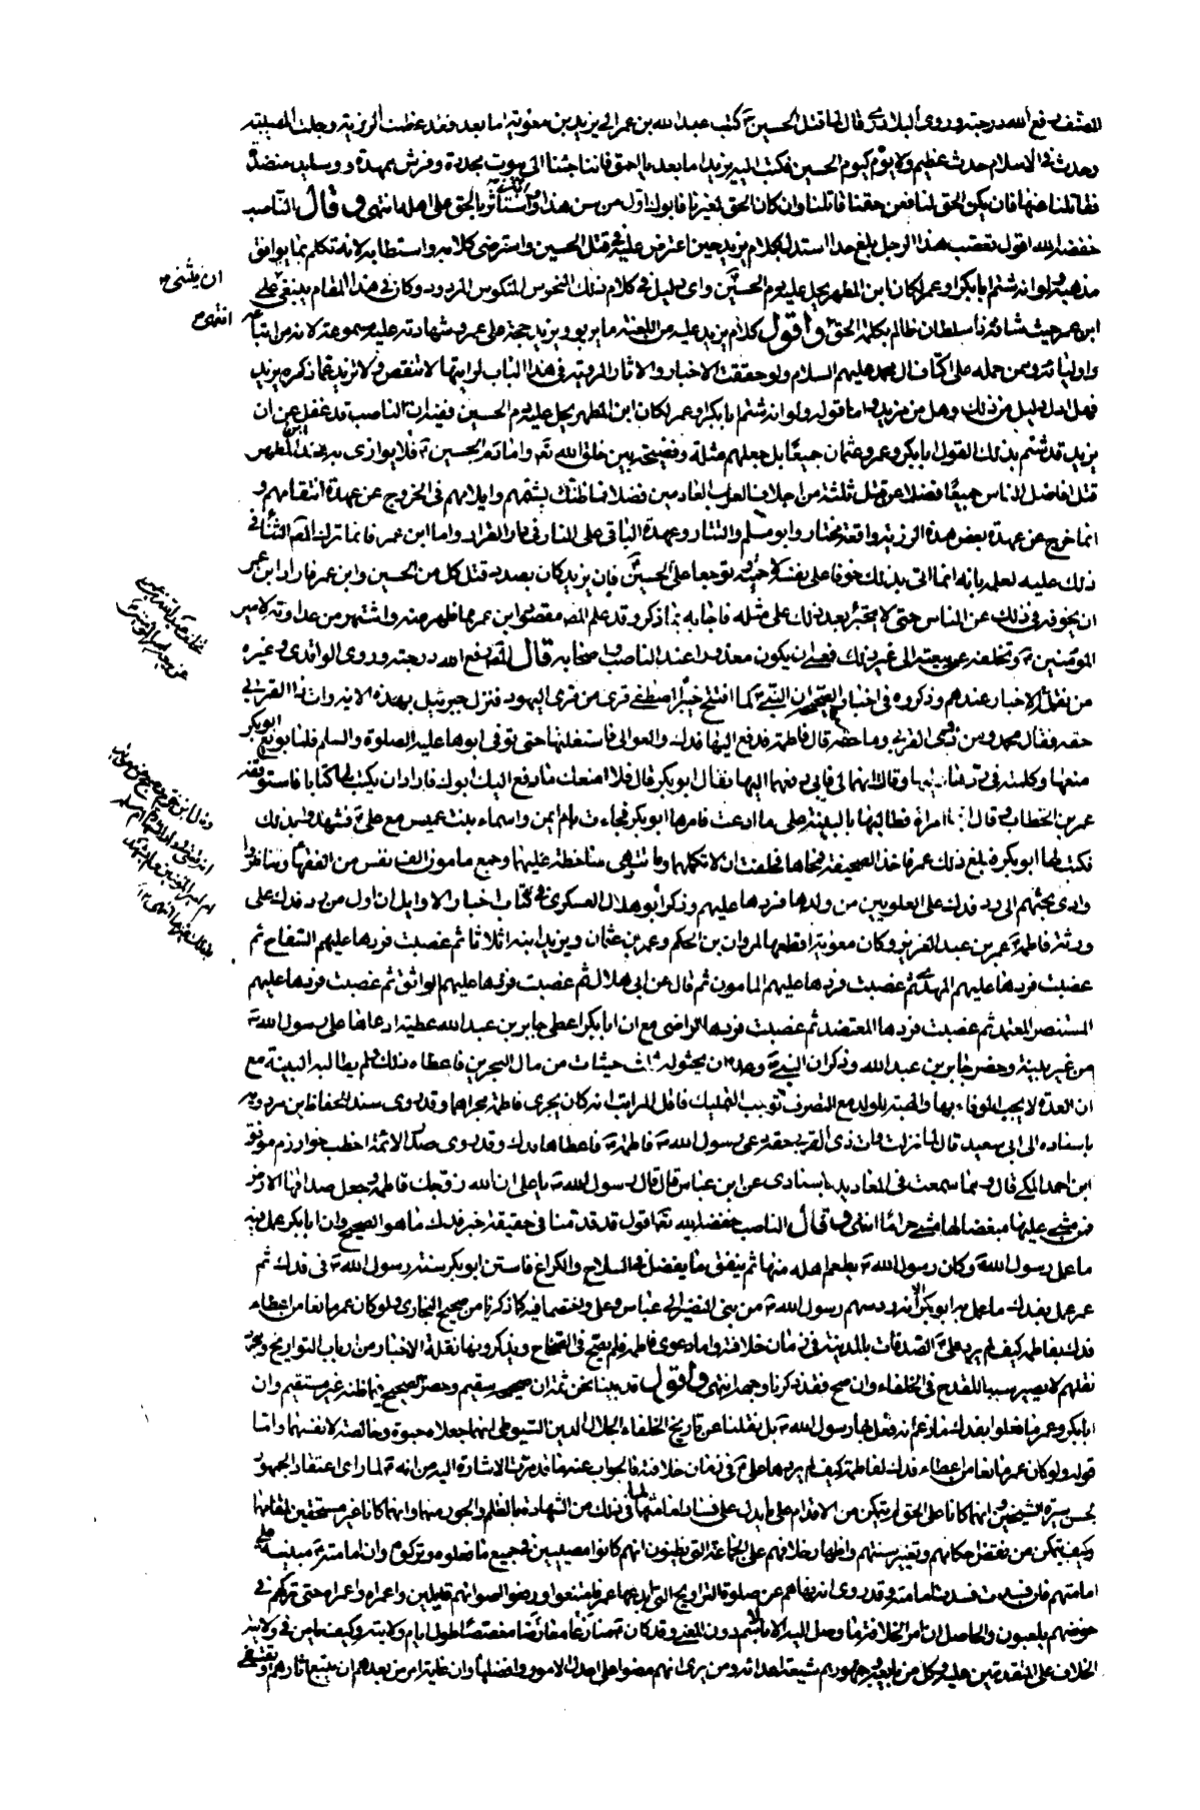 المصنف رفع الله درجته وروى البلاذري قال لما قتل الحسين ع كتب عبد الله بن عمر الى يزيد بن معوية اما بعد فقد عظمت الرزية وجلت المصيبة
وحدث في الاسلام حدث عظيم ولا يوم كيوم الحسين فكتب اليه يزيد اما بعد يا احمق فاننا جئنا الى بيوت مجددة وفرش ممهدة ووسايد منضدة
فقاتلنا عنها فان يكن الحق لنا فعن حقنا قاتلنا وان كان الحق لغيرنا فابوك اول من سن هذا واستاثر بالحق على اهله انتهى وقال الناصب
خفضه الله اقول تعصب هذا الرجل بلغ حدا استدل بكلام يزيد حين اعترض عليه في قتل الحسين واسترضى كلامه واستطابه لانه تكلم بما يوافق
مذهبه ولو انه شتم ابا بكر وعمر لكان ابن المطهر يحل عليه دم الحسين ع واي دليل في كلام ذلك المنحوس المنكوس المردود وكان في هذا المقام ينبغي على
ابن عمر حيث شافه ذا سلطان ظالم بكلمة الحق واقول كلام يزيد عليه من اللعنة ما يربو ويزيد حجة على عمر وشهادته عليه مسموعة لانه من اتباعه
واوليائه وممن حمله على اكتاف آل محمد عليهم السلام ولو حققت الاخبار والاثار المروية في هذا الباب لرايتها لا تنقص ولا تزيد عما ذكره يزيد
فهل دل دليل من ذلك وهل من مزيد واما قوله ولو انه شتم ابا بكر وعمر لكان ابن المطهر يحل عليه دم الحسين ففيه ان الناصب قد غفل عن ان
يزيد قد شتم بذلك القول ابا بكر وعمر وعثمان جميعا بل جعلهم مثلة وفضيحة بين خلق الله تعالى واما دم الحسين ع فلا يوازى به عند ابن المطهر
قتل افاضل الناس جميعا فضلا عن قتل ثلثة من اجلاف العرب العادمين فضلا فما ظنك بشتمهم وايلامهم في الخروج عن عهدة انتقامهم و
انما خرج عن عهدة بعض هذه الرزية واقعة مختار وابو مسلم والتتار وعهدة الباقي على النار في دار القرار واما ابن عمر فانما ترك المص الثناء في
ذلك عليه لعلمه بانه انما اتى بذلك خوفا على نفسه لا حبا وتوجعا على الحسين ع فان يزيد كان بصدد قتل كل من الحسين وابن عمر فاراد ابن عمر
ان يخوفه في ذلك عن الناس حتى لا يجترئ بعد ذلك على مثله فاجابه بما ذكر وقد علم المص مقصود ابن عمر مما ظهر منه واشتهر من عداوته لامير
المؤمنين ع وتخلفه عن بيعته الى غير ذلك فعسى ان يكون معذورا عند الناصب واصحابه قال المص رفع الله درجته وروى الواقدي وغيره
من نقلة الاخبار عندهم وذكروه في اخبارهم الصحيحة ان النبي ص لما افتتح خيبر اصطفى قرى من قرى اليهود فنزل جبرئيل بهذه الاية وات ذا القربى
حقه فقال محمد ومن ذوي القربى وما حقه قال فاطمة فدفع اليها فدك والعوالي فاستغلتها حتى توفي ابوها عليه الصلوة والسلم فلما بويع ابو بكر
منعها وكلمته في ردها عليها وقالت انهما لي فابى دفعها اليها فقال ابو بكر فلا امنعك ما دفع اليك ابوك فاراد ان يكتب لها كتابا فاستوقفه
عمر بن الخطاب وقال انها امراة فطالبها بالبينة على ما ادعت فامرها ابو بكر فجاءت بام ايمن واسماء بنت عميس مع علي ع فشهدوا بذلك
فكتب لها ابو بكر فبلغ ذلك عمر فاخذ الصحيفة فمحاها فحلفت ان لا تكلمهما وماتت وهي ساخطة عليهما وجمع مامون الف نفس من الفقهاء وتناظروا
وادى بحثهم الى رد فدك على العلويين من ولدها فردها عليهم وذكر ابو هلال العسكري في كتاب اخبار الاوايل ان اول من رد فدك على
ورثة فاطمة ع عمر بن عبد العزيز وكان معوية اقطعها لمروان بن الحكم وعمر بن عثمان ويزيد ابنه اثلاثا ثم غصبت فردها عليهم السفاح ثم
غصبت فردها عليهم المهدي ثم غصبت فردها عليهم المامون ثم قال عن ابي هلال ثم غصبت فردها عليهم الواثق ثم غصبت فردها عليهم
المستنصر المعتمد ثم غصبت فردها المعتضد ثم غصبت فردها الراضي مع ان ابا بكر اعطى جابر بن عبد الله عطية ادعاها على رسول الله ص
من غير بينة وحضر جابر بن عبد الله وذكر ان النبي ص وعده ان يحثو له ثلاث حثيات من مال البحرين فاعطاه ذلك ولم يطالبه البينة مع
ان العدة لا يجب الوفاء بها والهبة للولد مع التصرف توجب التمليك فاقل المراتب انه كان يجرى فاطمة مجراها وقد روى سند الحفاظ ابن مردويه
باسناده الى ابي سعيد قال لما نزلت وات ذي القربى حقه دعى رسول الله ص فاطمة ع فاعطاها فدك وقد روى صدر الائمة اخطب خوارزم موفق
ابن احمد المكي قال ومما سمعت في المفاريد باسنادي عن ابن عباس قال قال رسول الله ص يا علي ان الله زوجك فاطمة وجعل صداقها الارض
فمن مشى عليها مبغضا لها مشى حراما انتهى وقال الناصب خفضه الله تعالى اقول قد قدمنا في حقيقة خبر فدك ما هو الصحيح وان ابا بكر عمل فيه
ما عمل رسول الله ص وكان رسول الله ص يطعم اهله منها ثم ينفق ما يفضل في السلاح والكراع فاستن ابو بكر سنة رسول الله ص في فدك ثم
عمر عمل بفدك ما عمل به ابو بكر الا انه رد سهم رسول الله ص من بني النضير الى عباس وعلي واختصما فيه كما ذكرنا من صحيح البخاري ولو كان عمر مانعا من اعطاء
فدك لفاطمة كيف لم يرد علي ع الصدقات بالمدينة في زمان خلافته واما دعوى فاطمة فلم يصح في الصحاح ويذكرونها نقلة الاخبار من ارباب التواريخ ومجرد
نقلهم لا يصير سببا للقدح في الخلفاء وان صح فقد ذكرنا وجهه انتهى واقول قد بينا نحن ثمة ان صحيحه سقيم وحصر الصحيح فيما ظنه غير مستقيم وان
ابا بكر وعمر ما فعلوا بفدك ما زعم انه فعل بها رسول الله ص بل نقلنا عن تاريخ الخلفاء لجلال الدين السيوطي انهما جعلاه حبوة وخالصة لانفسهما واما
قوله ولو كان عمر مانعا من اعطاء فدك لفاطمة كيف لم يردها علي ع في زمان خلافته فالجواب عنه ما قد مرت الاشارة اليه من انه ع لما راى اعتقاد الجمهور
بحسن سيرة الشيخين وانهما كانا على الحق لم يتمكن من الاقدام على ما يدل على فساد امامتهما لما في ذلك من الشهادة بالظلم والجور منهما وانهما كانا غير مستحقين لمقامهما
وكيف يتمكن من نقض احكامهم وتغيير سنتهم واظهار خلافهم على الجماعة التي يظنون انهم كانوا مصيبين في جميع ما فعلوه وتركوه وان امامته ع مبنية على
امامتهم فان فسدت فسدت امامته وقد روى انه نهاهم عن صلوة التراويح التي ابدعها عمر فامتنعوا ورفعوا اصواتهم قائلين واعمراه واعمراه حتى تركهم في
خوضهم يلعبون والحاصل ان امر الخلافة ما وصل اليه الا بالاسم دون المعنى وقد كان ع منازعا معارضا مغتصا طول ايام ولايته وكيف يامن في ولايته
الخلاف على المتقدمين عليه وكل من بايعه وجمهورهم شيعة اعدائه ومن يرى انهم مضوا على اعدل الامور وافضلها وان غاية امر من بعدهم ان يتبع اثارهم ويقتفي